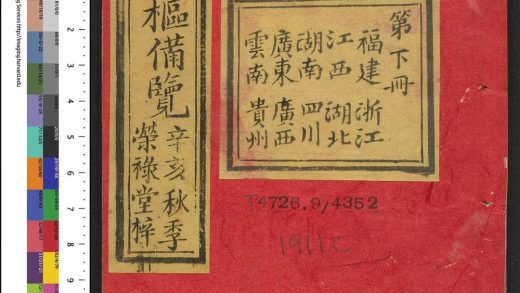 第下冊
福建 浙江
江西 湖北
湖南 四川
廣東 廣西
雲南 貴州
樞備覽
辛亥秋季
榮祿堂梓
T4726.9/4352
1911C
2
3
4
5
6
7
8
9